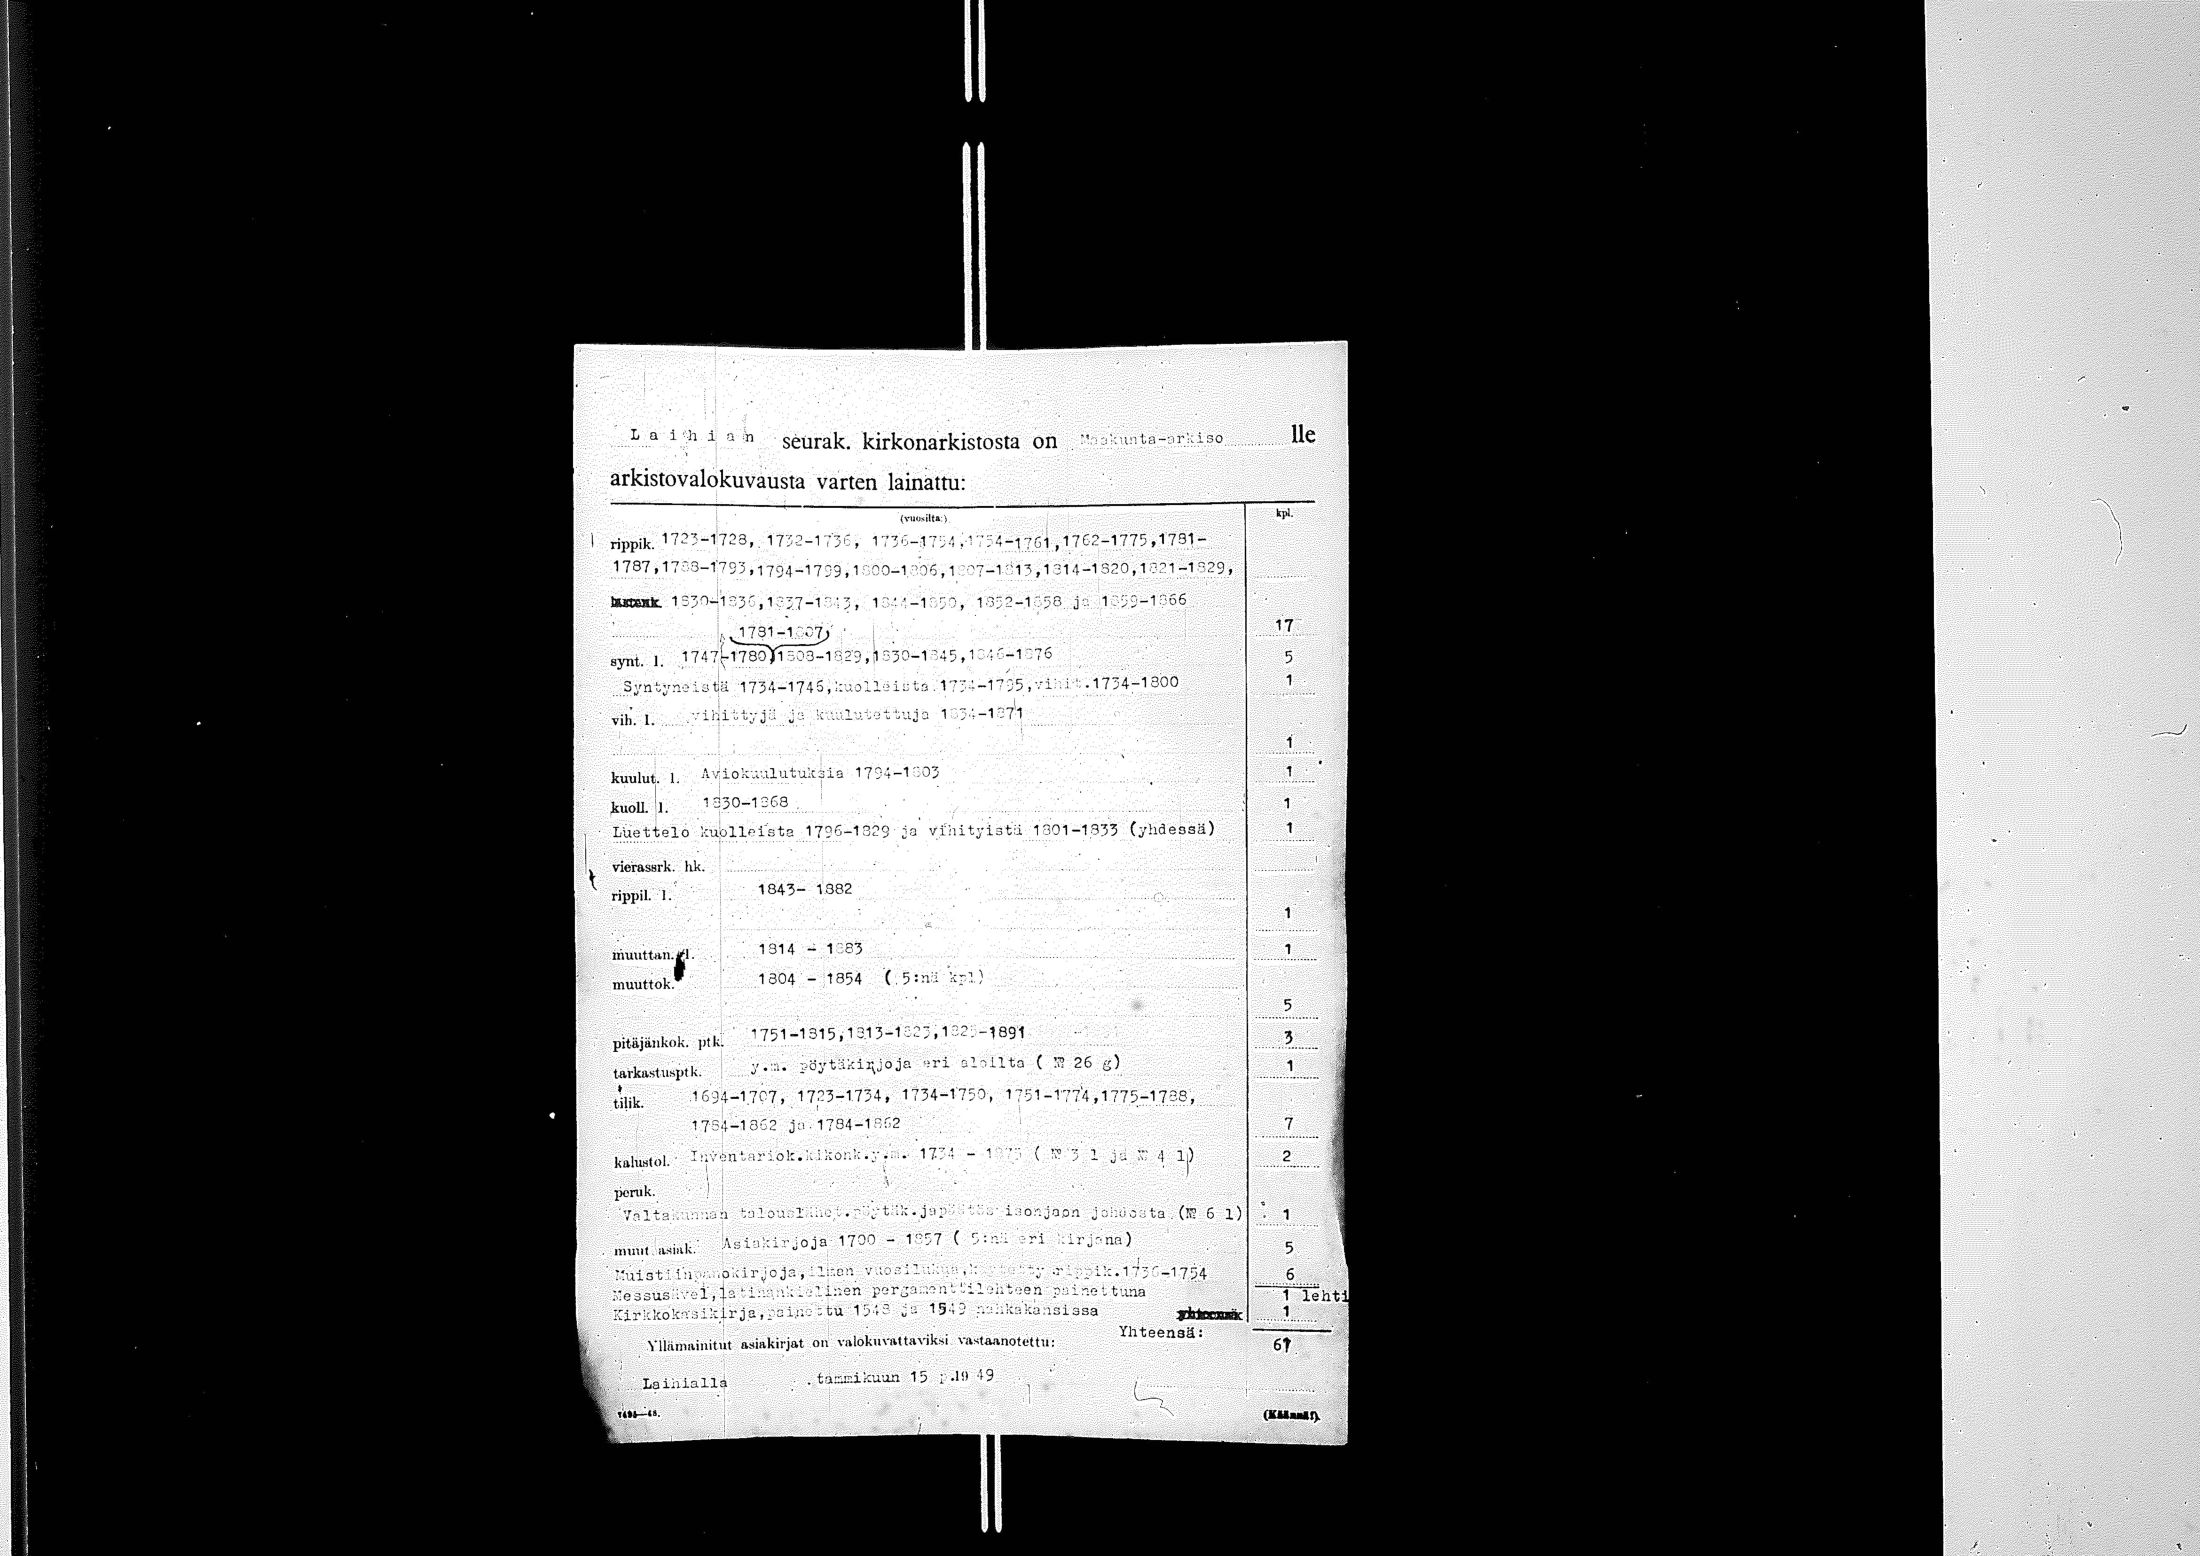 Laihian seurak. kirkonarkistosta on Maakunta-arkiso lle
arkistovalokuvausta varten lainattu:
(vuosilta:) kpl.
rippik. 1723-1728, 1732-1736, 1736-1754,1754-1761,1762-1775,1781-
1787,1788-1793,1794-1799,1800-1806,1807-1813,1814-1820,1821-1829,
1830-1836,1837-1843, 1844-1850, 1852-1858 ja 1859-1866
1781-1807, 17
synt. l. 1747-1780,1808-1829,1830-1845,1846-1876 5
Syntyneistä 1734-1746,kuolleista 1734-1795,vihit.1734-1800 1
vih. l. vihittyjä ja kuulutettuja 1834-1871
1
kuulut. l. Aviokuulutuksia 1794-1803 1
kuoll. l. 1830-1868 1
Luettelo kuolleista 1796-1829 ja vihityistä 1801-1833 (yhdessä) 1
vierassrk. hk.
rippil. l. 1843- 1882
1
muuttan. l. 1814 - 1883 1
muuttok. 1804 - 1854 ( 5:nä kpl)
5
pitäjänkok. ptk. 1751-1815,1813-1823,1825-1891 3
tarkastusptk. y.m. pöytäkirjoja eri aloilta ( № 26 g) 1
tilik. 1694-1707, 1723-1734, 1734-1750, 1751-1774,1775-1788,
1784-1862 ja 1784-1862 7
kalustol. Inventariok.kikonk.y.m. 1734 - 1875 ( № 3 l ja № 4 l) 2
peruk.
Valtakunnan isonjaon johdosta (№ 6 l) 1
muut asiak. Asiakirjoja 1700 - 1857 ( 5:nä eri kirjana) 5
Muistiinpanokirjoja,ilman vuosilukua,käytetty rippik.1736-1754 6
Messusävel,latinankielinen pergamenttilehteen painettuna 1 lehti
Kirkkokäsikirja,painettu 1548 ja 1549 nahkakansissa 1
Yhteensä:
Yllämainitut asiakirjat on valokuvattaviksi vastaanotettu: 61
Laihialla tammikuun 15 p.19 49
(Käännä!).